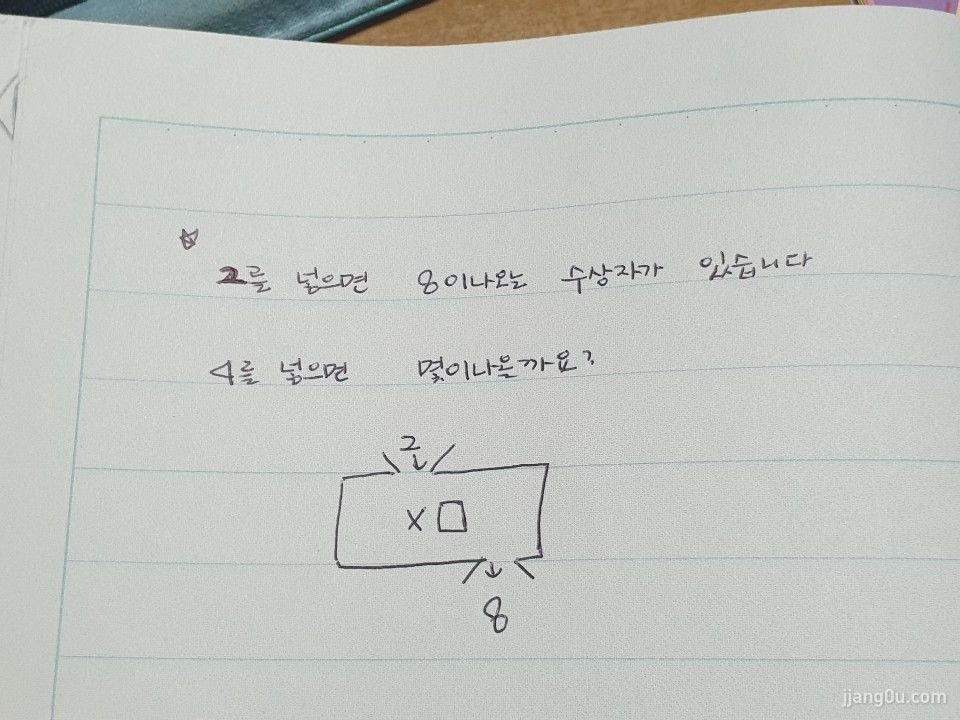 ☆
2를 넣으면 8이나오는 수상자가 있습니다
4를 넣으면 몇이나올까요?
2
↓
× □
↓
8
jjang0u.com